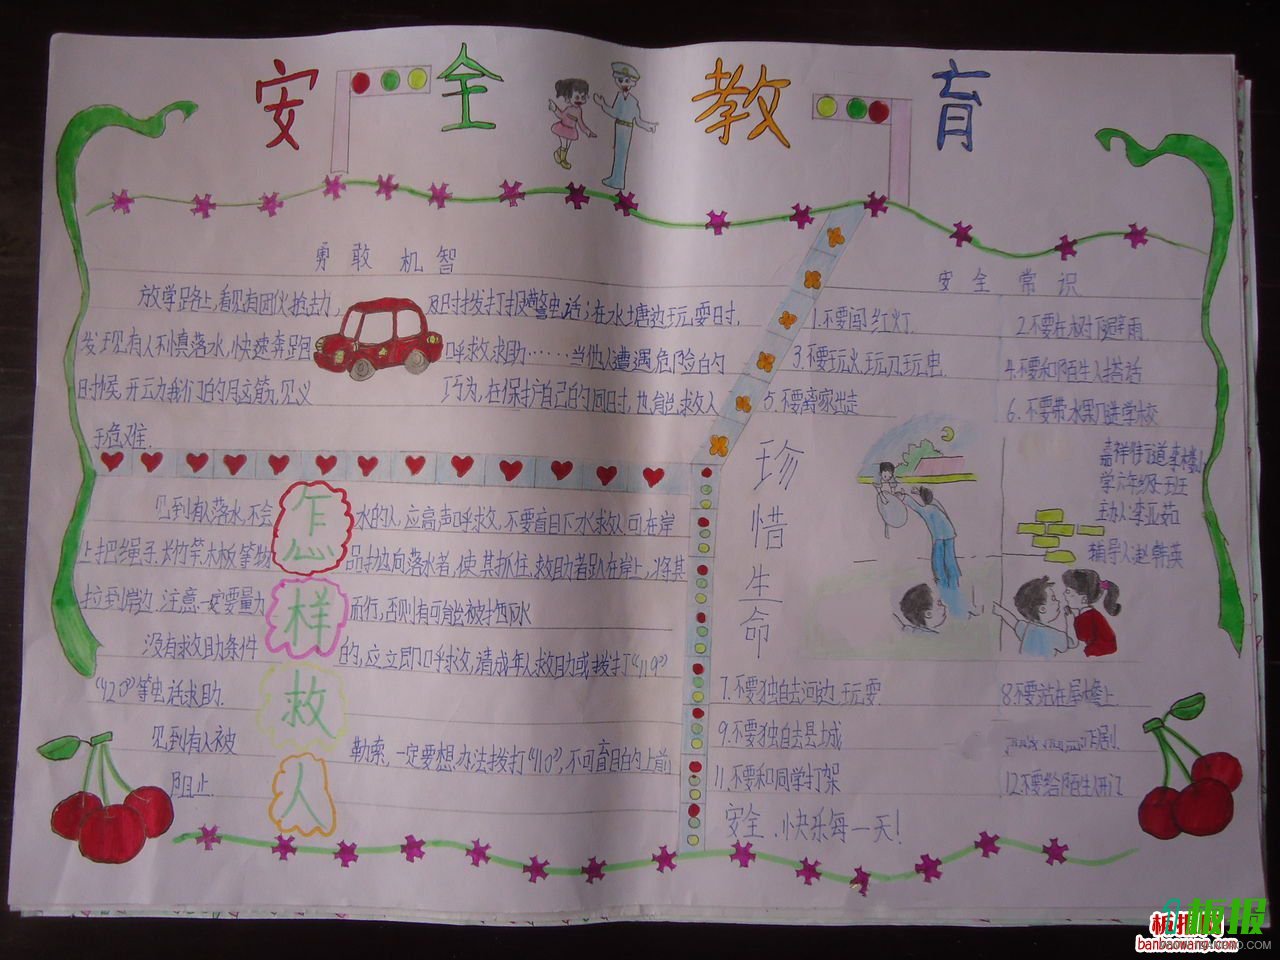 安全教育
勇敢机智
放学路上,看见有团伙抢劫,及时拨打报警电话;在水塘边玩耍时,
发现有人不慎落水,快速奔跑呼救求助……当他人遭遇危险的
时候,开动我们的脑筋,见义巧为,在保护自己的同时,也能救人
于危难.
怎样救人
见到有人落水,不会水的人,应高声呼救,不要盲目下水救人,可在岸
上把绳子.长竹竿.木板等物品抛向落水者,使其抓住,救助者趴在岸上,将其
拉到岸边.注意一定要量力而行,否则有可能被拖下水
没有救助条件的,应立即呼救,请成年人救助或拨打“119”
“120”等电话求助.
见到有人被勒索,一定要想办法拨打“110”,不可盲目的上前
阻止.
安全常识
1.不要闯红灯.
2.不要在树下避雨
3.不要玩火.玩刀.玩电.
4.不要和陌生人搭话
5.不要离家出走
6.不要带水果刀进学校
珍惜生命
嘉祥街道李楼小
学六年级班
主办:李亚茹
辅导人:赵 英
7.不要独自去河边玩耍.
8.不要站在屋檐上.
9.不要独自去县城
作剧.
11.不要和同学打架
12.不要给陌生人开门
安全.快乐每一天!
板报
banbaowang.com